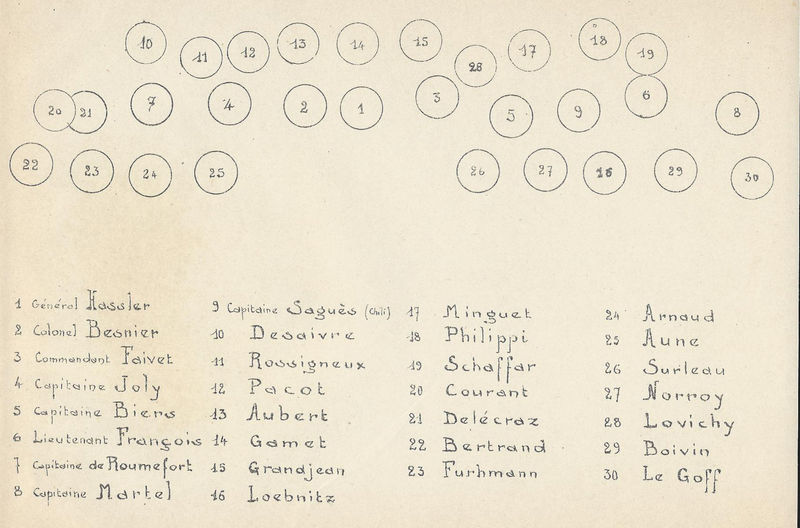 10 11 12 13 14 15 28 17 18 19
20 21 7 4 2 1 3 5 9 6 8
22 23 24 25 26 27 16 29 30
1 Général Hassler
2 Colonel Besnier
3 Commandant Faivet
4 Capitaine Joly
5 Capitaine Biers
6 Lieutenant François
7 Capitaine de Roumefort
8 Capitaine Martel
9 Capitaine Saguès (Chili)
10 Desaivre
11 Rossigneux
12 Pacot
13 Aubert
14 Gamet
15 Grandjean
16 Loebnitz
17 Minguet
18 Philippi
19 Schaffar
20 Courant
21 Delécraz
22 Bertrand
23 Furhmann
24 Arnaud
25 Aune
26 Surleau
27 Norroy
28 Lovichy
29 Boivin
30 Le Goff